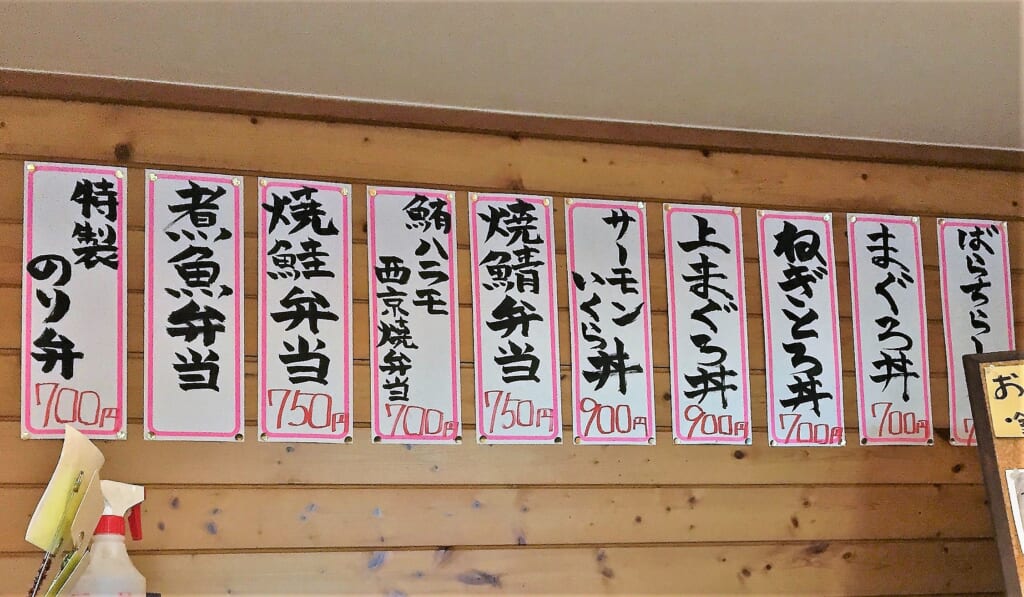 ばらちらし
まぐろ丼
700円
ねぎとろ丼
700円
上まぐろ丼
900円
サーモン
いくら丼
900円
焼鯖弁当
750円
鮪ハラモ
西京焼弁当
700円
焼鮭弁当
750円
煮魚弁当
特製
のり弁
700円
お